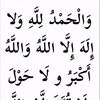 وَالْحَمْدُ لِلَّهِ وَلَا
إِلَهَ إِلَّا اللَّهُ وَاللَّهُ
أَكْبَرُ و لَا حَوْلَ